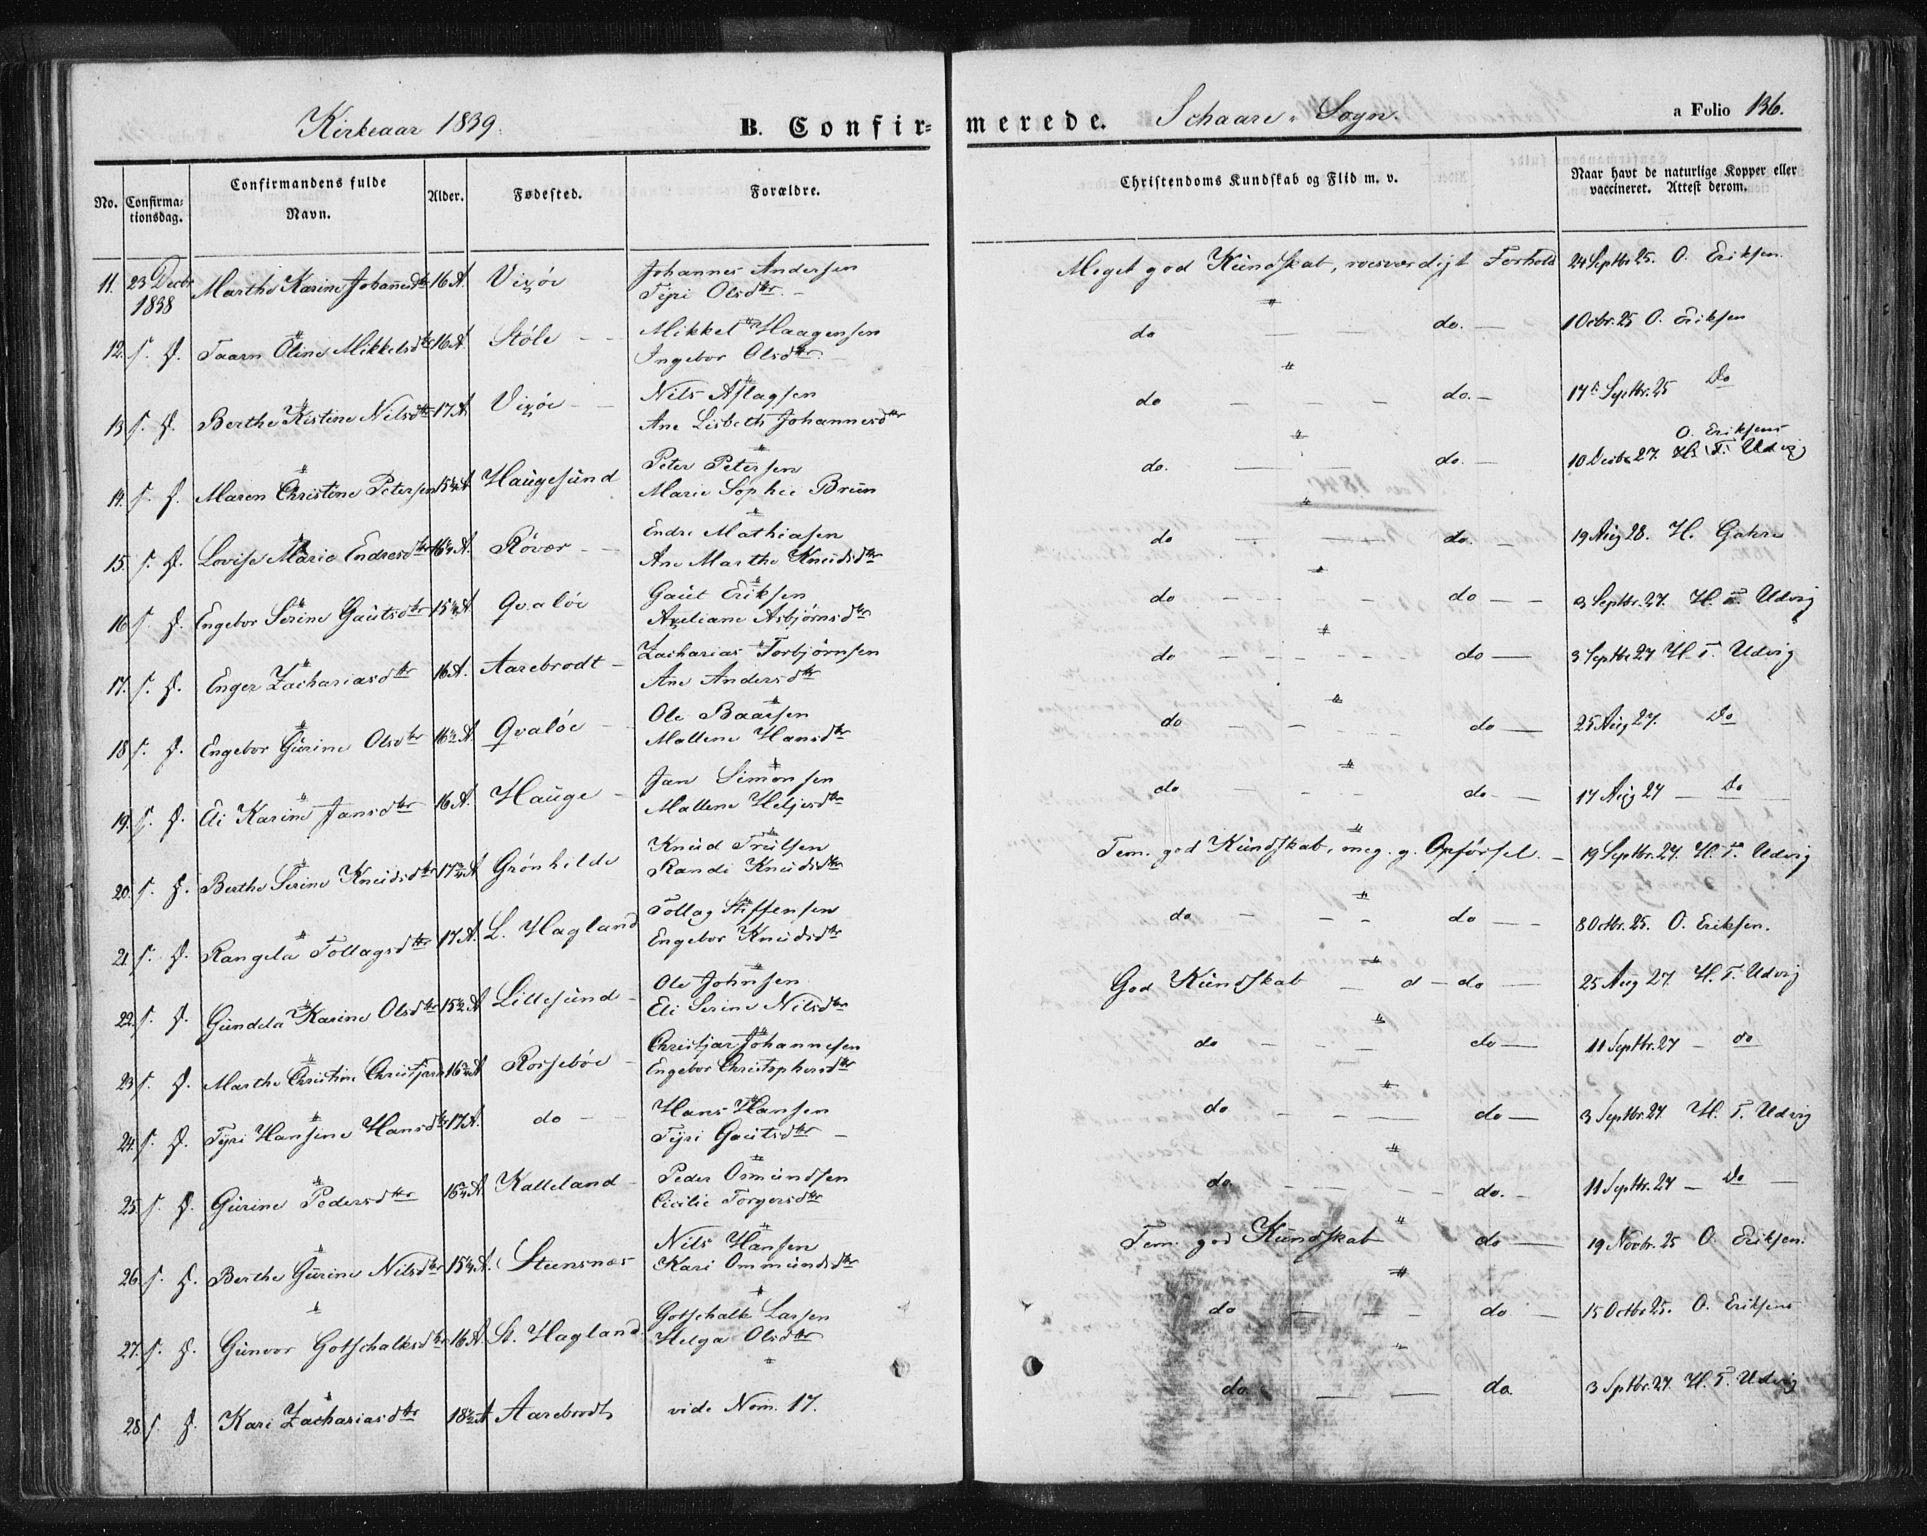 Kirkeaar 1839.
B. Confirmerede.
Schaare Sogn.
a Folio 136.
No. Confirmationsdag. Confirmandens fulde Navn. Alder. Fødested. Forældre. Christendoms Kundskab og Flid m. v. Naar havt de naturlige Kopper eller vaccineret. Attest derom.
11. 23 Decbr 1838 Marthe Karine Johannsdtr 16 A. Vixøe Johannes Andersen Tyri Olsdtr. Meget god Kundskab, roesværdigt Forhold 24 Septbr 25. O. Eriksen
12. s. D. Taarn Oline Mikkelsdtr 16 A. Støle Mikkel Haagensen Ingebor Olsdtr. do do. 1 Octbr. 25 O. Eriksen
13 s. D. Berthe Kistine Nilsdtr 17 A. Vixøe Nils Aslagsen Ane Lisbeth Johannesdtr do do. 17 Septbr. 25 Do
14. s. D. Maren Christine Petersen 15 A Haugesund Peter Petersen Marie Sophie Brun do. do. 10 Decbr 27. O. Eriksens H. T. Udvig
15. s. D. Lovise Marie Endresdtr 16 A. Røvær Endre Mathiasen Ane Marthe Knudsdtr do do. 19 Aug 28. H. Gahre
16 s. D. Engebor Serine Gautsdtr 15 A Qvaløe Gaut Eriksen Axeliane Asbjørnsdtr do do 3 Septbr. 27. H. T. Udvig
17. s. D. Enger Zachariasdtr 16 A. Aarebrodt Zacharias Torbjørnsen Ane Andersdtr do do 3 Septbr 27 H. T. Udvig
18 s. D. Engebor Gurine Olsdtr 16 A. Qvaløe Ole Baarsen Mallene Hansdtr do do 25 Aug 27. Do
19. s. D. Eli Karine Jansdtr 16 A. Hauge Jan Simonsen Mallene Heljesdtr do do 17 Aug 27 Do
20. s. D. Berthe Serine Knudsdtr 17 A Grønhelde Knud Trulsen Randi Knudsdtr Tem. god Kundskab, meg. g. Opførsel. 19 Septbr. 27. H. T. Udvig
21. s. D. Rangela Tollagsdtr 17 A. L. Hagland Tollag Steffensen Engebor Knudsdtr do do 8 Octbr. 25. O. Eriksen.
22. s. D. Gundela Karine Olsdtr 15 A Lillesund Ole Johnsen Eli Serine Nilsdtr God Kundskab d do 25 Aug 27. H. T. Udvig
23 s. D. Marthe Christine Christjans 16 A Rossebøe Christjan Johannesen Engebor Christophersdtr do do 11 Septbr. 27 do
24. s. D. Tyri Hansine Hansdtr 17 A. do Hans Hansen Tyri Gautsdtr do do 3 Septbr. 27. H. T. Udvig
25. s. D. Gurine Pedersdtr 16 A Kalleland Peder Osmundsen Cicilie Torgersdtr do do. 11 Septbr. 27 Do
26. s. D. Berthe Gurine Nilsdtr 15 A. Steensnæs Nils Hansen Kari Ommundsdtr Tem. god Kundskab do 19 Novbr. 25 O. Eriksen.
27. s. D. Gunvor Gotschalksdtr 16 A. St. Hagland Gotschalk Larsen Helga Olsdtr do do 15 Octbr 25. O. Eriksens
28. s. D. Kari Zachariasdtr 18 A Aarebrodt vide Nom. 17. do do. 3 Septbr. 27 H. T. Udvig